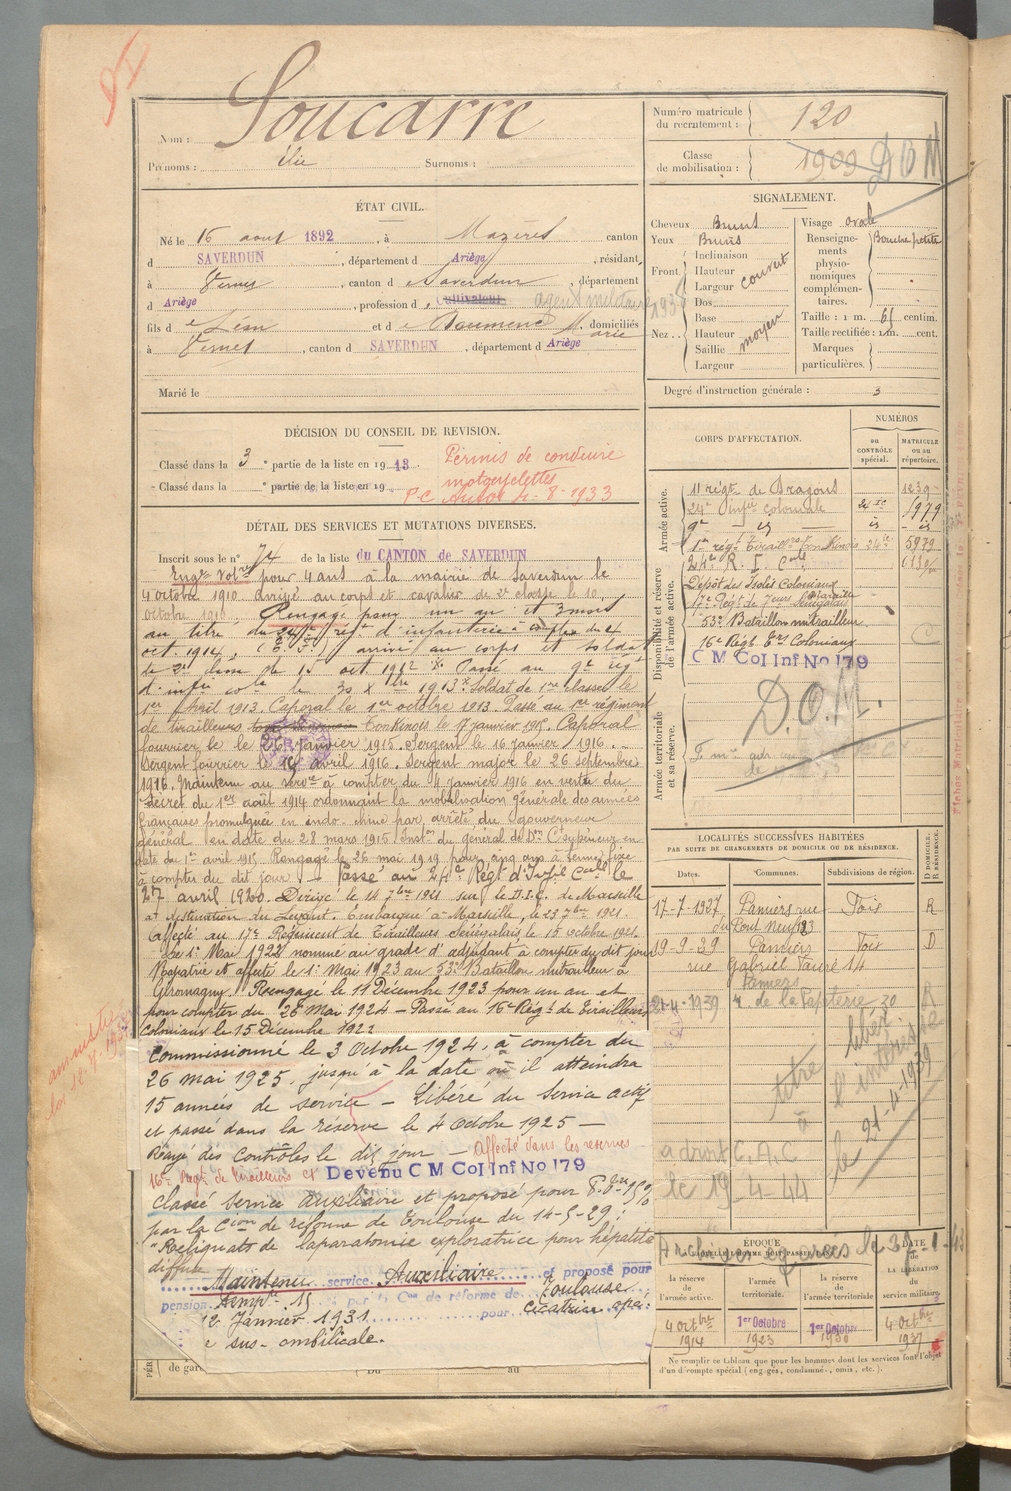 Soucarre
Nom :
Prénoms : Élie Surnoms :
ÉTAT CIVIL.
Né le 16 aout 1892, à Mazères canton
d SAVERDUN, département d Ariège, résidant
à Vernet, canton d e Saverdun, département
d Ariège, profession d cultivateur
fils d e Léon et d e Marie, domiciliés
à Vernet, canton d SAVERDUN, département d Ariège
Marié le
DÉCISION DU CONSEIL DE REVISION.
Classé dans la 3e partie de la liste en 1913
Classé dans la e partie de la liste en 19
Permis de conduire
motocyclettes
P.C. Autos 4-8-1933
DÉTAIL DES SERVICES ET MUTATIONS DIVERSES.
Inscrit sous le n° 74 de la liste du CANTON de SAVERDUN
Engé volre pour 4 ans à la mairie de Saverdun le
4 octobre 1910 arrivé au corps et cavalier de 2e classe le 10
octobre 1910. Rengagé pour un an et 3 mois
au titre du 24e régt d'infanterie à compter du 4
oct. 1914, arrivé au corps et soldat
de 2e classe le 15 oct. 1912. Passé au 9e régt
d'infie cole le 30 Xbre 1913. Soldat de 1re classe le
1er Avril 1913. Caporal le 1er octobre 1913. Passé au 1er régiment
de tirailleurs Tonkinois le 17 janvier 1915. Caporal
fourrier le 26 janvier 1915. Sergent le 16 janvier 1916.
Sergent fourrier le 16 avril 1916. Sergent major le 26 septembre
1916. Maintenu au service à compter du 4 janvier 1916 en vertu du
décret du 1er août 1914 ordonnant la mobilisation générale des armées
françaises promulguée en indo-chine par arrêté du gouverneur
général en date du 28 mars 1915 Inston du général de Don Ct supérieur en
date du 1er avril 1915. Rengagé le 26 mai 1919 pour cinq ans à terme fixe
à compter du dit jour. Passé au 24e Régt d'Infie Cale le
27 avril 1920. Dirigé le 14 7bre 1921 sur le D.I.C. de Marseille
à destination du Levant. Embarqué à Marseille, le 23 7bre 1921.
Affecté au 17e Régiment de Tirailleurs Sénégalais le 15 octobre 1921.
Le 1er Mai 1922 nommé au grade d'adjudant à compter du dit jour
Rapatrié et affecté le 1er Mai 1923 au 53e Bataillon mitrailleur à
Giromagny. Rengagé le 11 Décembre 1923 pour un an et
pour compter du 26 Mai 1924 - Passé au 16e Régt de Tirailleurs
Coloniaux le 15 Décembre 192
Commissionné le 3 Octobre 1924, à compter du
26 mai 1925, jusqu'à la date où il atteindra
15 années de service - Libéré du service actif
et passé dans la réserve le 4 Octobre 1925 -
Rayé des contrôles le dit jour - Affecté dans les réserves
16e Régt de tirailleurs Ct Devenu C M Col Inf No 179
Classé Service Auxiliaire et proposé pour P.
par la Cion de réforme de Toulouse du 14-5-29 :
"Reliquats de laparatomie exploratrice pour hépatite
diffuse
Maintenu service Auxiliaire et proposé pour
pension par la Con de réforme de Toulouse
12 Janvier 1931 pour cicatrice opé:
e sus-ombilicale.
amnistié
loi
Numéro matricule du recrutement : 120
Classe de mobilisation : 1909 DOM
SIGNALEMENT.
Cheveux Bruns
Yeux Bruns
Front { Inclinaison
Hauteur
Largeur couvert
Nez { Dos
Base
Hauteur
Saillie moyen
Largeur
Visage ovale
Renseignements physionomiques complémentaires. Bouche petite
Taille : 1 m. 65 centim.
Taille rectifiée : 1 m. cent.
Marques particulières.
Degré d'instruction générale : 3
CORPS D'AFFECTATION.
NUMÉROS
au CONTRÔLE spécial.
MATRICULE ou au répertoire.
Armée active.
11 régt de Dragons 1239
24e Infie coloniale 5979
9e — id —
1er régt Tiraillrs Tonkinois 5979
Disponibilité et réserve de l'armée active.
24e R. I. Cale
Dépôt des Isolés Coloniaux
Marseille
17e Régt de Tleurs Sénégalais
53e Bataillon mitrailleur
16e Régt Ters Coloniaux
C M Col Inf No 179
Armée territoriale et sa réserve.
D.O.M.
LOCALITÉS SUCCESSIVES HABITÉES
PAR SUITE DE CHANGEMENTS DE DOMICILE OU DE RÉSIDENCE.
Dates. Communes. Subdivisions de région. D DOMICILE. R RÉSIDENCE.
17-7-1927 Pamiers rue Foix R
du Pont Neuf 23
19-9-39 Pamiers Foix D
rue Gabriel Fauré 14
Pamiers
21-4-1939 r. de la Papeterie 20 R
libéré
titre
à l'intéressé
le 21-4-1939
a droit C.A.C
le 19-4-44
ÉPOQUE
À LAQUELLE L'HOMME DOIT PASSER DANS
la réserve de l'armée active.
l'armée territoriale.
la réserve de l'armée territoriale
DATE de LA LIBÉRATION du service militaire.
4 octbre 1914
1er Octobre 1923
1er Octobre 1930
4 Octbre 1937
Ne remplir ce tableau que pour les hommes dont les services font l'objet
d'un décompte spécial (engagés, condamnés, omis, etc.).